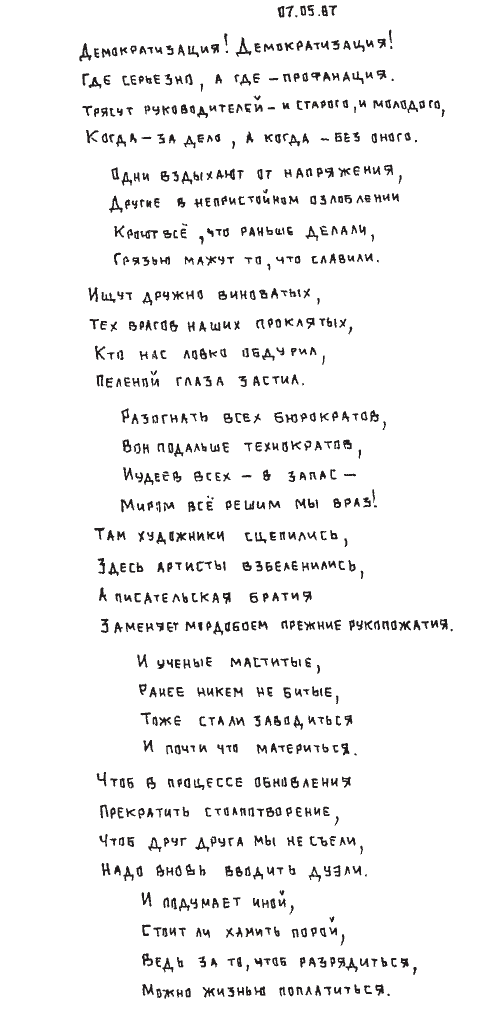 07.05.87
Демократизация! Демократизация!
Где серьезно, а где – профанация.
Трясут руководителей – и старого, и молодого,
Когда – за дело, а когда – без оного.
Одни вздыхают от напряжения,
Другие в непристойном озлоблении
Кроют всё, что раньше делали,
Грязью мажут то, что славили.
Ищут дружно виноватых,
Тех врагов наших проклятых,
Кто нас ловко обдурил,
Пеленой глаза застил.
Разогнать всех бюрократов,
Вон подальше технократов,
Иудеев всех – в запас –
Миром всё решим мы враз!
Там художники сцепились,
Здесь артисты взбеленились,
А писательская братия
Заменяет мордобоем прежние рукопожатия.
И ученые маститые,
Ранее никем не битые,
Тоже стали заводиться
И почти что материться.
Чтоб в процессе обновления
Прекратить столпотворение,
Чтоб друг друга мы не съели,
Надо вновь вводить дуэли.
И подумает иной,
Стоит ли хамить порой,
Ведь за то, чтоб разрядиться,
Можно жизнью поплатиться.